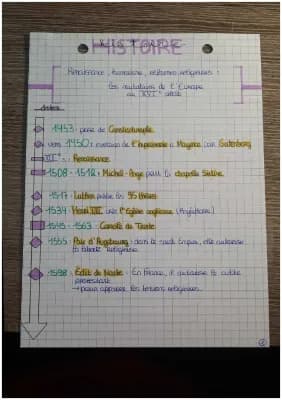 HISTOIRE
Renaissance, humanisme, réformes religieuses :
les mutations de l'Europe
au XVIe siècle
dates
1453 : prise de Constantinople
vers 1450 : invention de l'imprimerie à Mayence (par Gutenberg)
XVIe s. : Renaissance
1508 - 1512 : Michel-Ange peint la chapelle Sixtine
1517 : Luther publie les 95 thèses
1534 : Henri VIII crée l'Eglise anglicane (Angleterre)
1545 - 1563 : Concile de Trente
1555 : Paix d'Augsbourg : dans le saint Empire, elle autorise
la liberté religieuse
1598 : Édit de Nantes : En France, il autorise le culte
protestant
→ pour apaiser les tensions religieuses